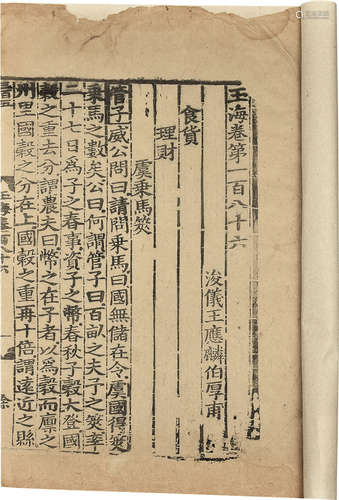 玉海卷第一百八十六
浚儀王應麟伯厚甫
食貨
理財
虞乘馬筴
管子威公問曰請問乘馬曰國無儲在令虞國得筴
乘馬之數矣公曰何謂管子曰百畝之夫子之筴率
二十七日為子之春事資子之幣春秋子穀大登國
穀之重去分謂農夫曰幣之在子者以為穀而廪之
州里國穀之分在上國穀之重再十倍謂遠近之縣